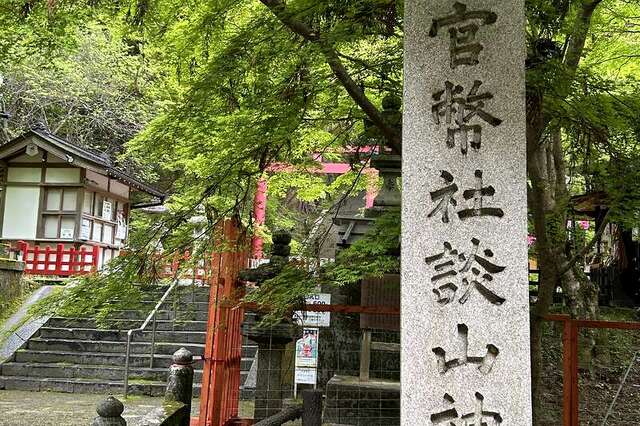 官幣社談山神